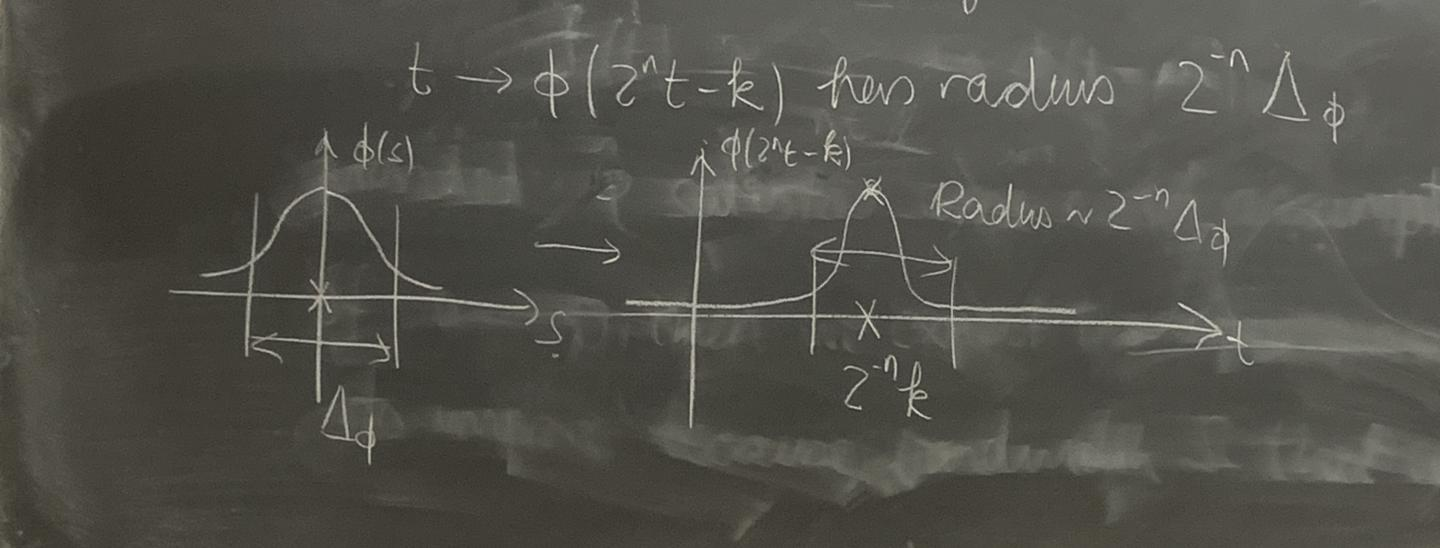 t → ϕ(2ⁿt - k) has radius 2⁻ⁿ Δ_ϕ
ϕ(s)
ϕ(2ⁿt - k)
Radius ~ 2⁻ⁿ Δ_ϕ
→
s
t
2⁻ⁿk
Δ_ϕ